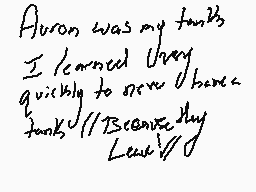 Auron was my tanks
I learned very
quickly to never have a
tank // Because they
Leave! //